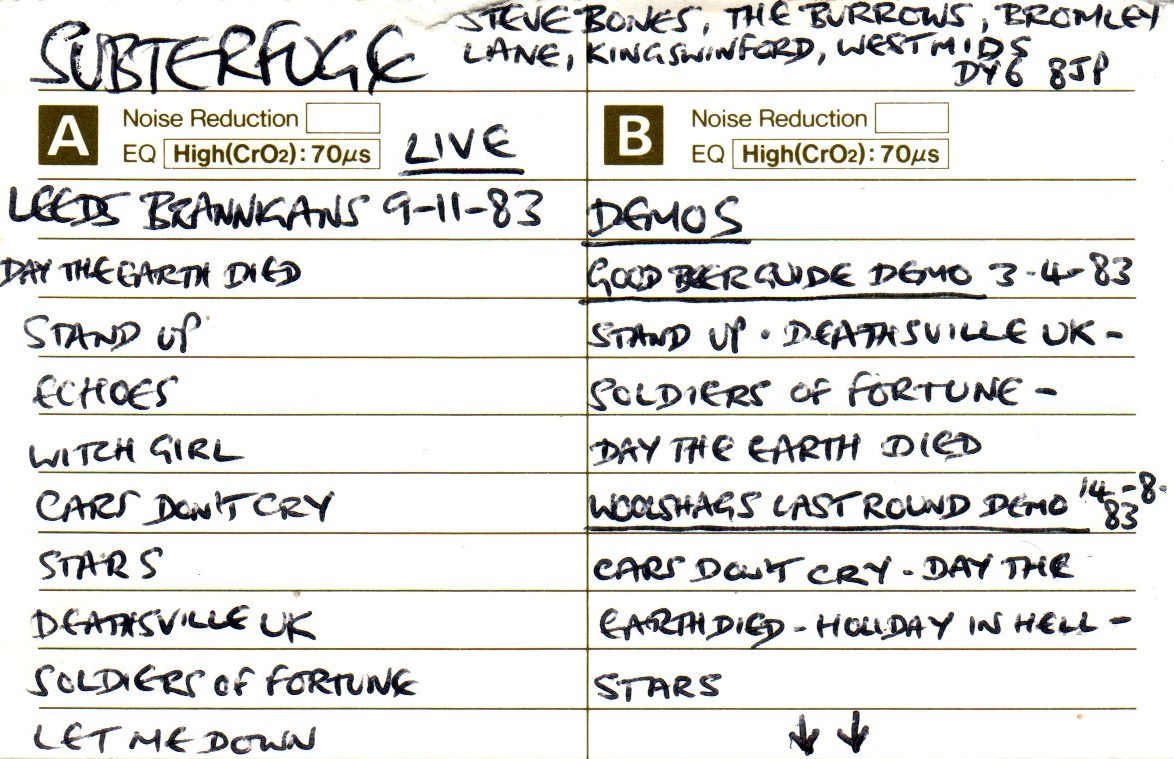 SUBTERFUGE
STEVE BONES, THE BURROWS, BROMLEY
LANE, KINGSWINFORD, WEST MIDS
DY6 8JP
A
Noise Reduction
EQ High(CrO2):70µs
LIVE
LEEDS BRANNIGANS 9-11-83
DAY THE EARTH DIED
STAND UP
ECHOES
WITCH GIRL
CARS DON'T CRY
STARS
DEATHSVILLE UK
SOLDIERS OF FORTUNE
LET ME DOWN
B
Noise Reduction
EQ High(CrO2):70µs
DEMOS
GOOD BEER GUIDE DEMO 3-4-83
STAND UP · DEATHSVILLE UK -
SOLDIERS OF FORTUNE -
DAY THE EARTH DIED
WOOLSHAGS LAST ROUND DEMO 14-8-
83
CARS DON'T CRY - DAY THE
EARTH DIED - HOLIDAY IN HELL -
STARS
↓ ↓